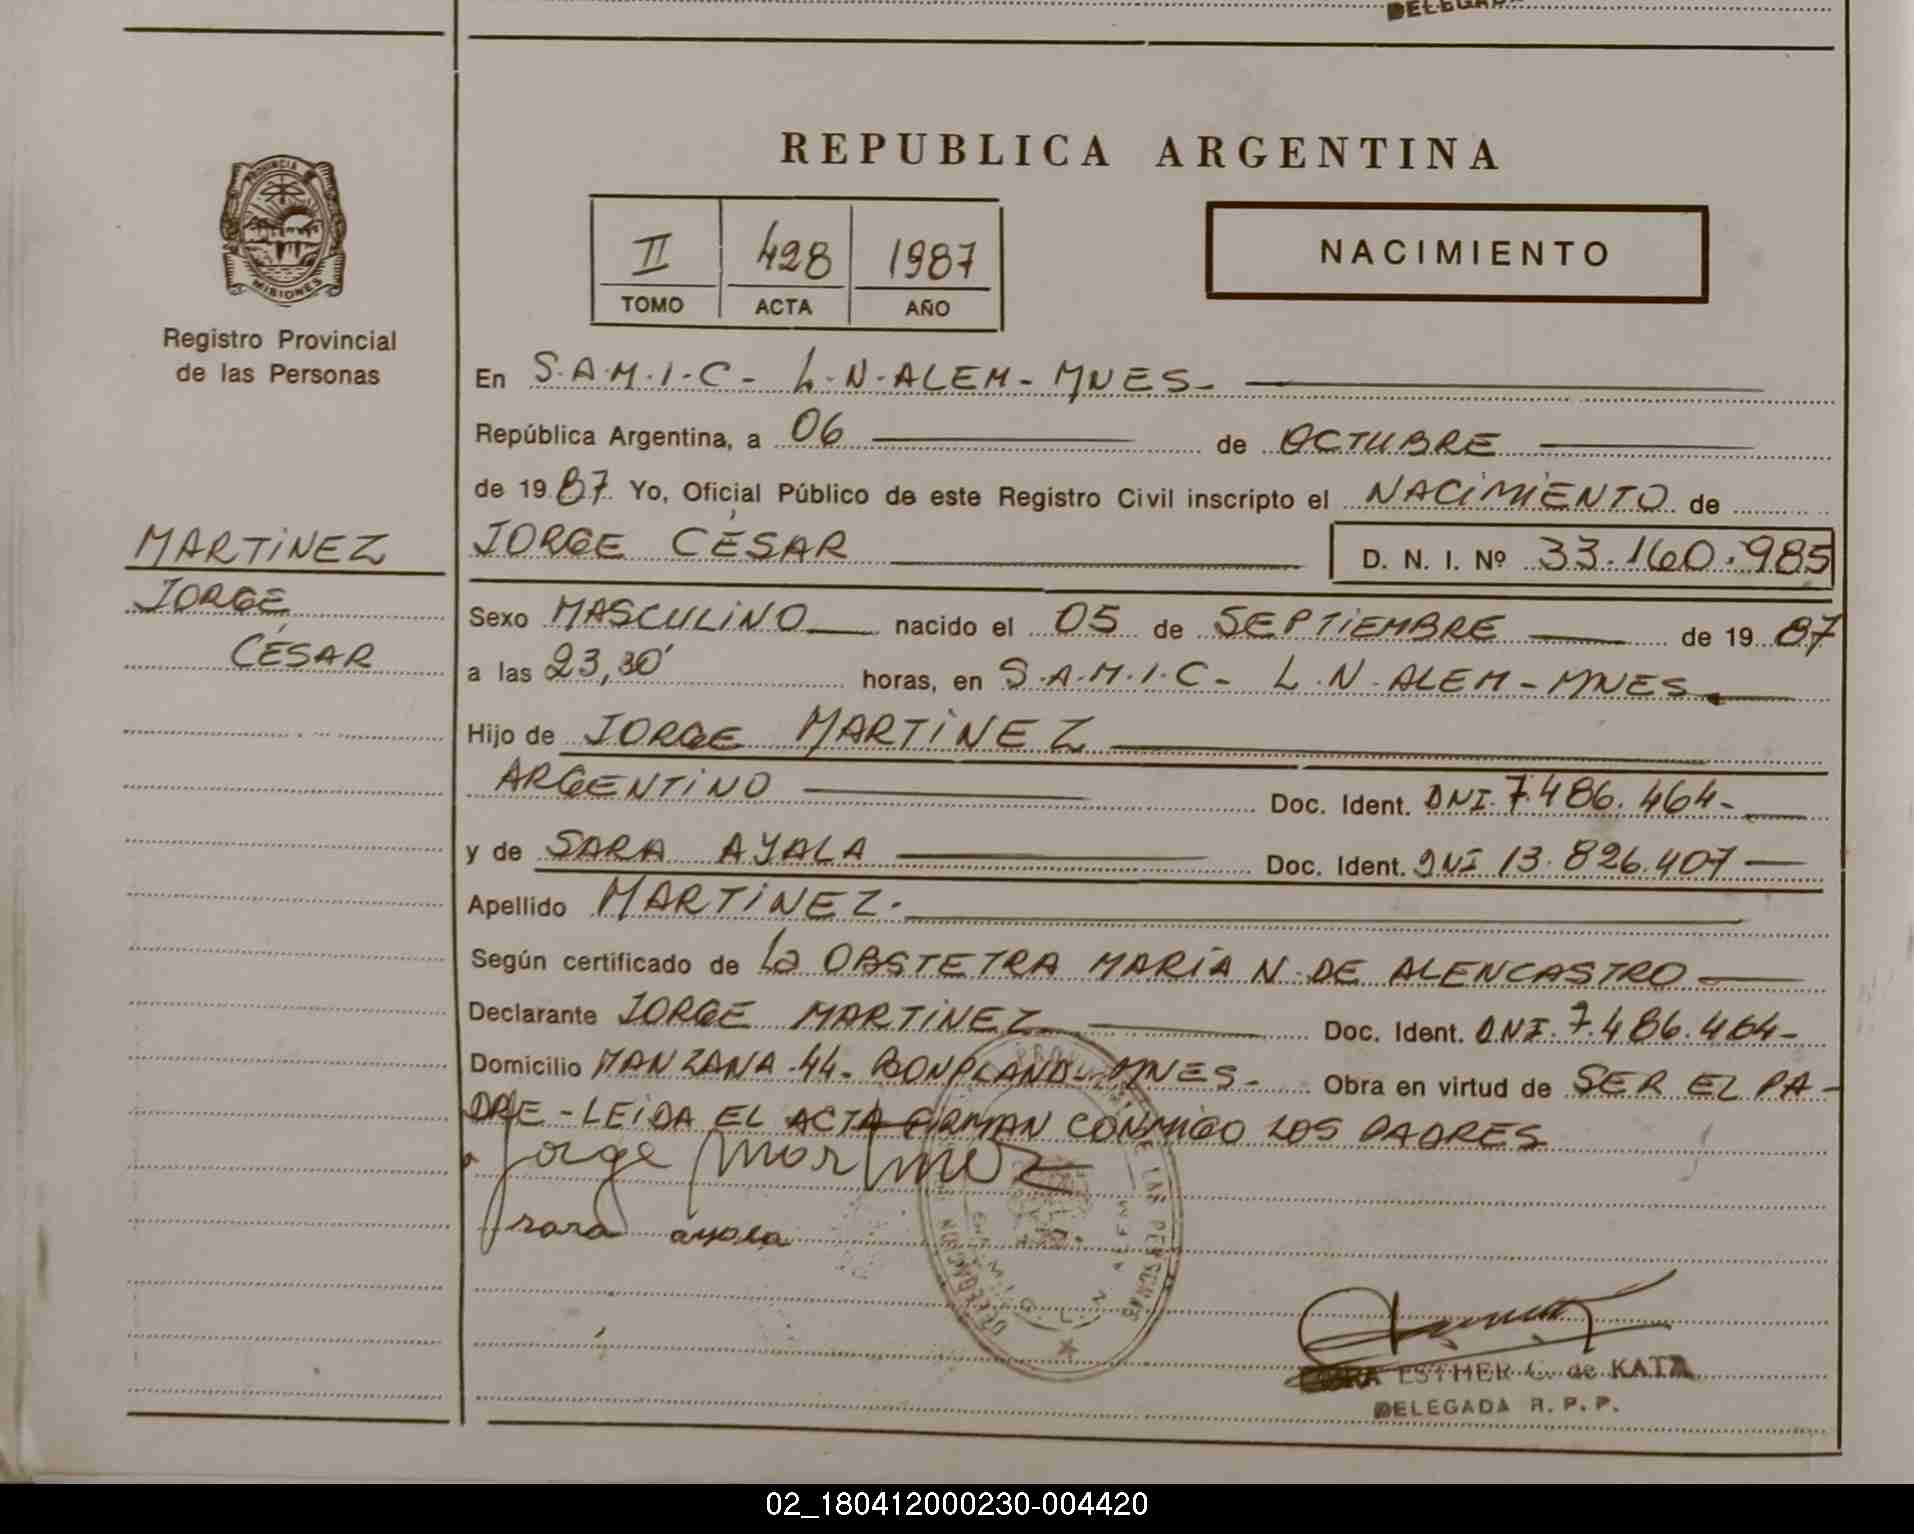 DELEGADA
REPUBLICA ARGENTINA
PROVINCIA
MISIONES
Registro Provincial
de las Personas
II 428 1987
TOMO ACTA AÑO
NACIMIENTO
En S.A.M.I.C- L.N-ALEM-MNES-
República Argentina, a 06 de OCTUBRE
de 1987 Yo, Oficial Público de este Registro Civil inscripto el NACIMIENTO de
MARTINEZ
JORGE CÉSAR D. N. I. Nº 33.160.985
JORGE
CÉSAR
Sexo MASCULINO nacido el 05 de SEPTIEMBRE de 1987
a las 23,30' horas, en S.A.M.I.C- L.N-ALEM-MNES
Hijo de JORGE MARTINEZ
ARGENTINO Doc. Ident. DNI.7.486.464-
y de SARA AYALA Doc. Ident. DNI 13.826.407
Apellido MARTINEZ.
Según certificado de La OBSTETRA MARÍA N. DE ALENCASTRO
Declarante JORGE MARTINEZ Doc. Ident. DNI.7.486.464-
Domicilio MANZANA-44-BONPLAND-MNES- Obra en virtud de SER EL PA-
DRE-LEIDA EL ACTA FIRMAN CONMIGO LOS PADRES
Jorge Martinez
sara ayala
DE LAS PERSONAS
DELEGACION
ESTHER C. de KATZ
DELEGADA R.P.P.
02_180412000230-004420